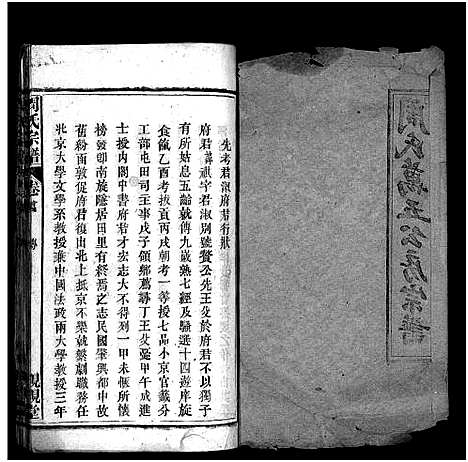 周氏萬五公房宗譜
先考君淑府君行狀
府君諱祺字君淑別號贅公先王父於府君不以獨子
有所姑息五齡就傅九歲熟七經及騷選十四遊庠旋
食餼乙酉丙戌朝考一等授七品小京官籤分
工部屯田司主事戊子領鄉薦尋丁王父憂甲午成進
士授內閣中書府君才宏志大不得列一甲未恆所懷
榜發卽南旋隱居田里有終焉之志民國肇興都中故
舊紛函敦促府君復出北上抵京不樂就繁劇職務任
北京大學文學系教授兼中國法政兩大學教授三年
周氏宗譜
卷首
傳
親親堂